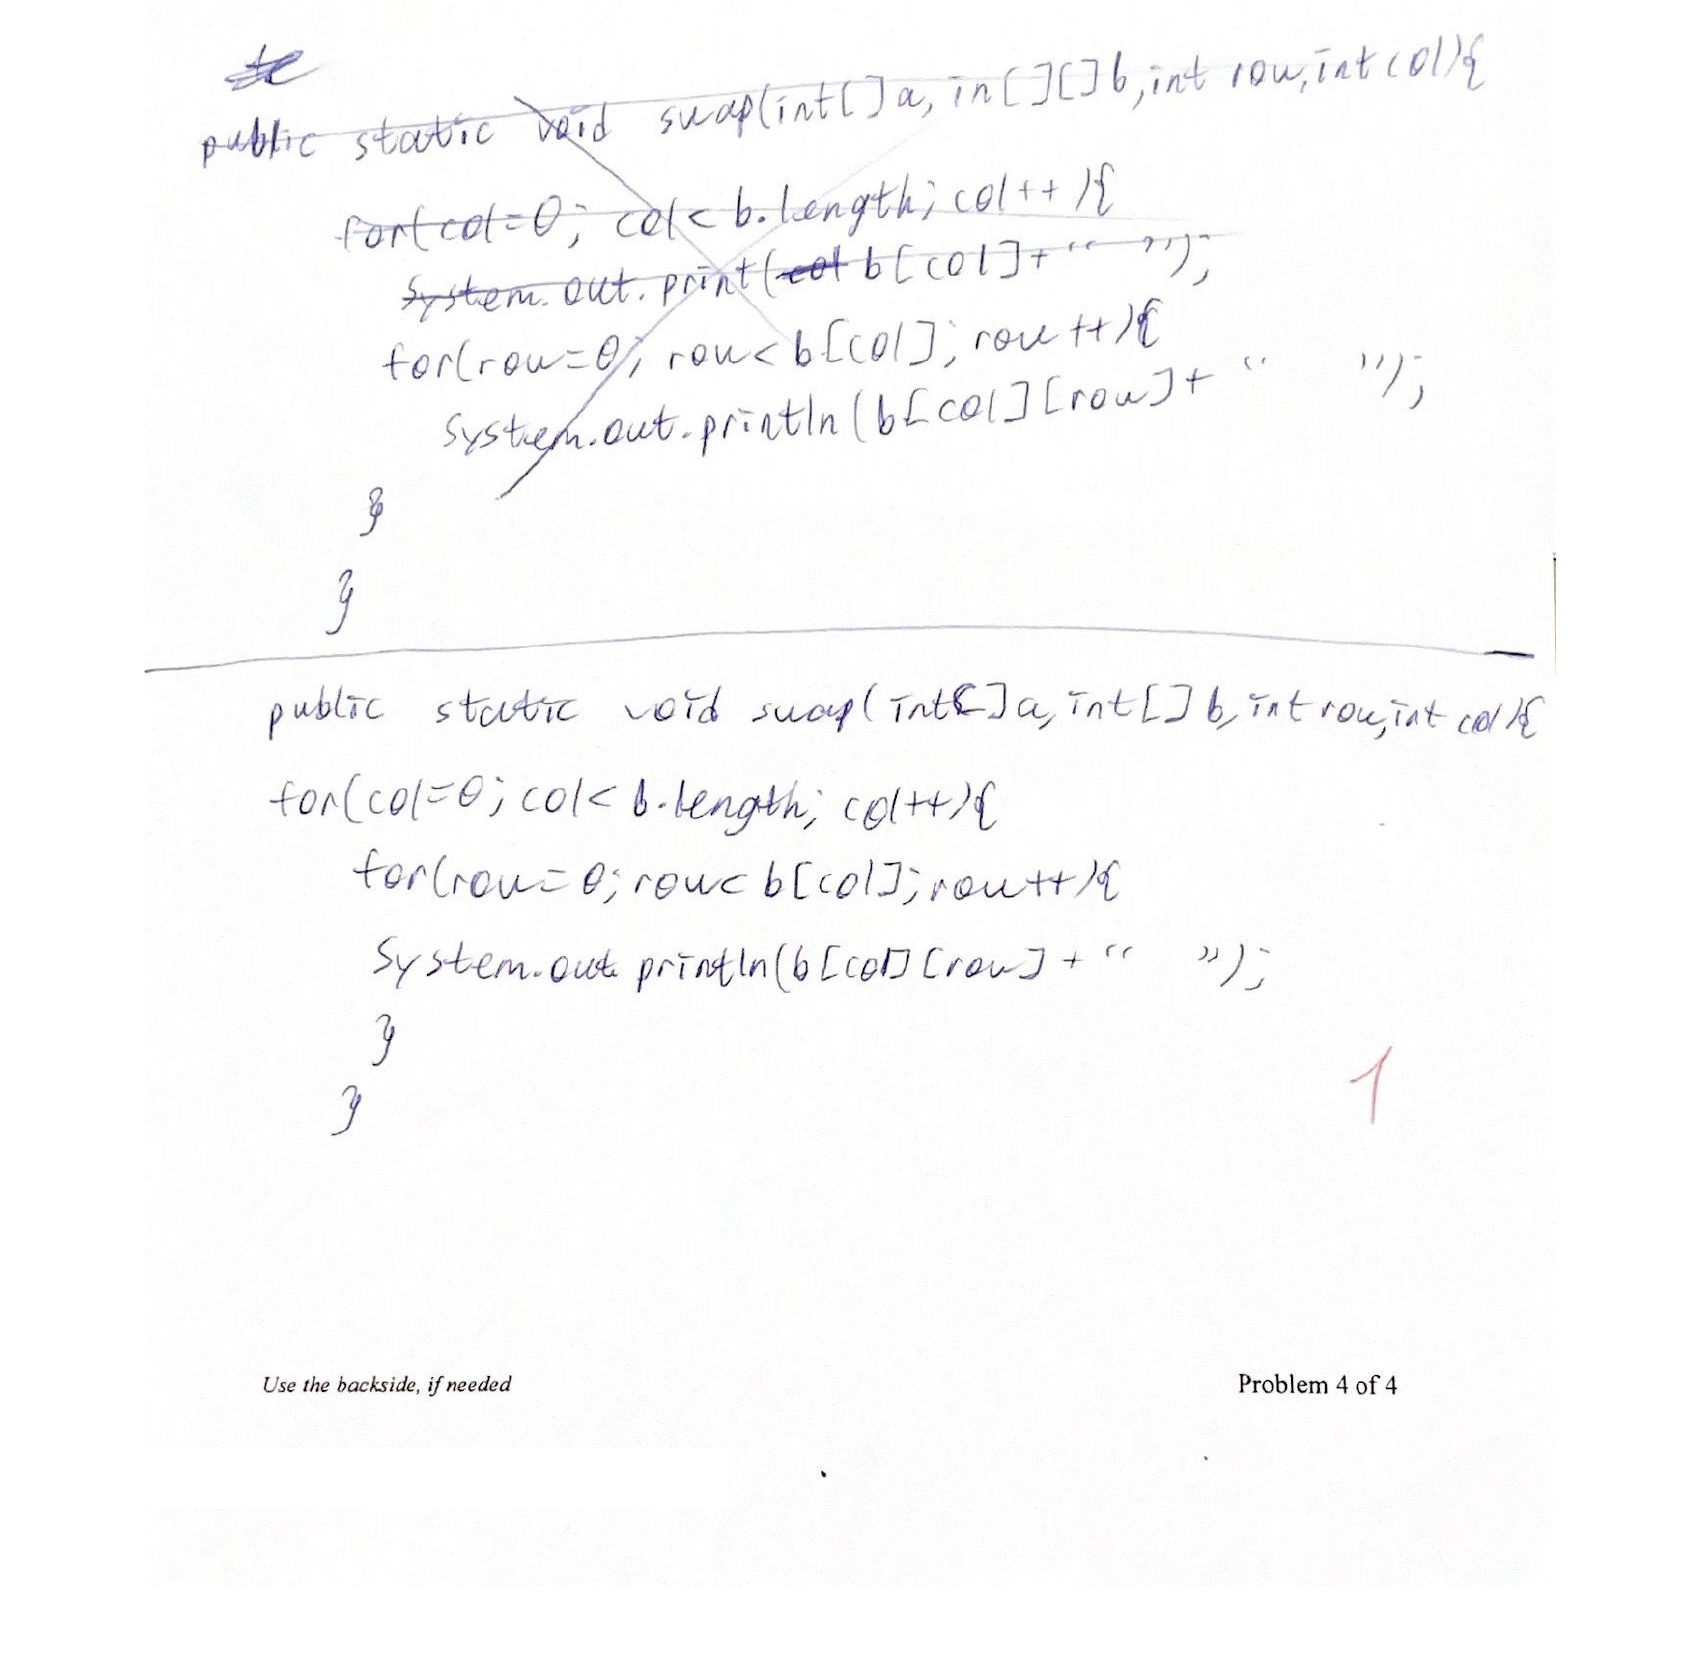 public static void swap(int[] a, in[][] b, int row, int col){
for(col=0; col< b.length; col++ ){
System.out.print(col b[col]+ "  ");
for(row=0; row< b[col]; row++){
System.out.println(b[col][row]+ "  ");
}
}
public static void swap(int[] a, int[] b, int row, int col){
for(col=0; col< b.length; col++){
for(row=0; row< b[col]; row++){
System.out.println(b[col][row] + "  ");
}
}
1
Use the backside, if needed
Problem 4 of 4